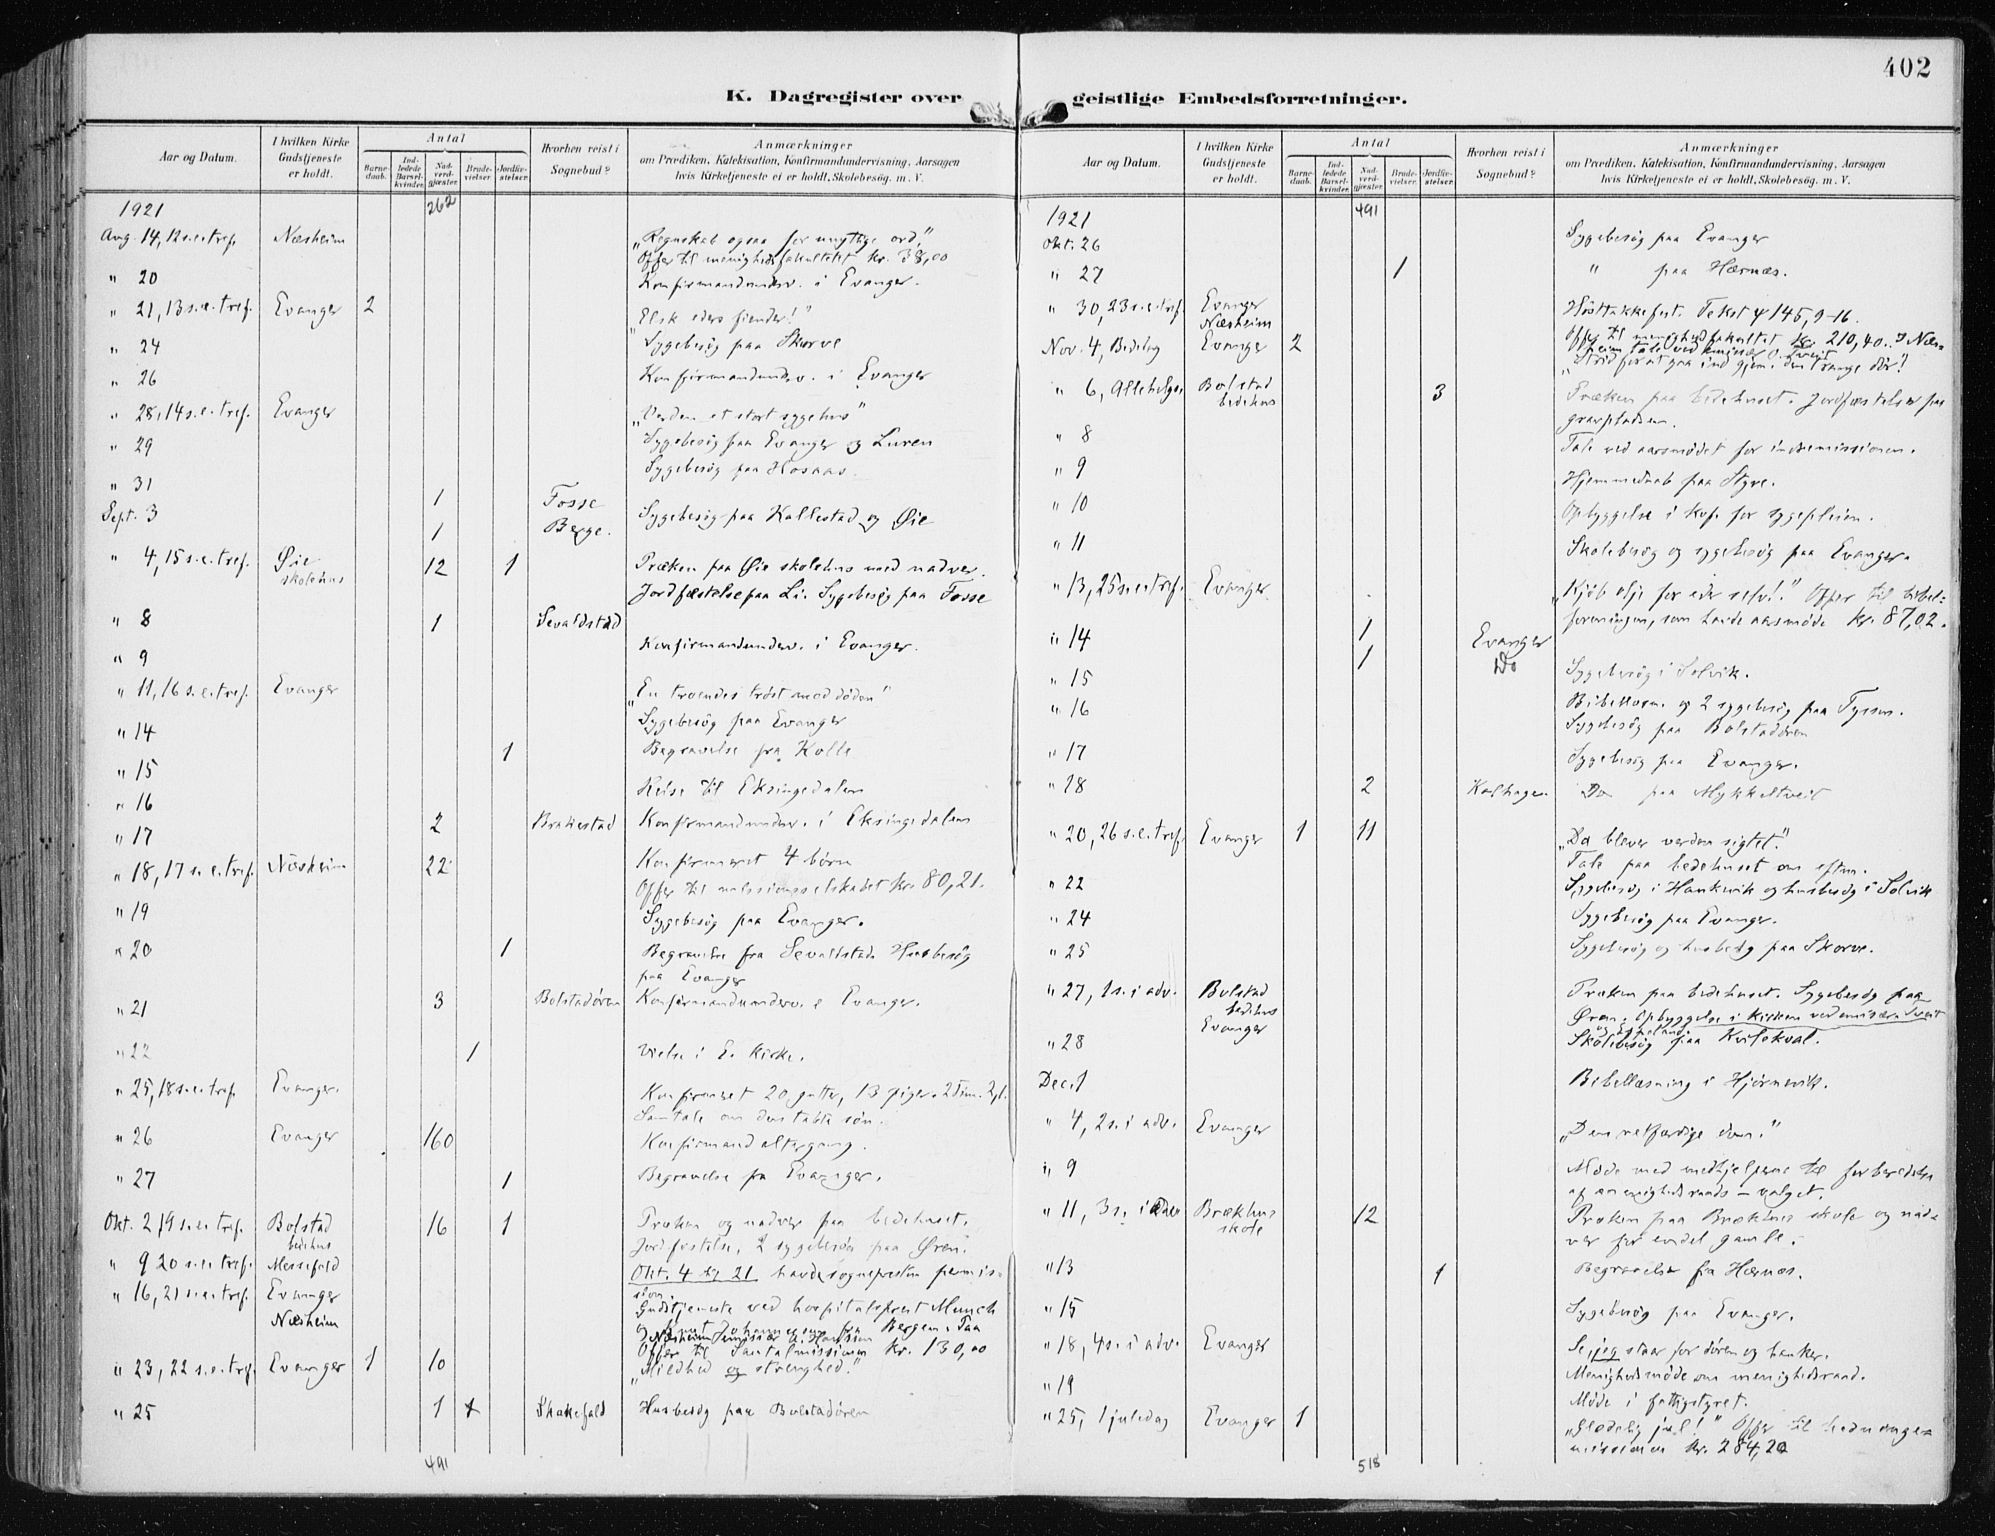 402
K. Dagregister over geistlige Embedsforretninger.
Aar og Datum.
I hvilken Kirke Gudstjeneste er holdt.
Antal
Barnedaab.
Indledede Barselkvinder.
Nadverdgjæster.
Brudevielser.
Jordfæstelser.
Hvorhen reist i Sognebud?
Anmærkninger
om Prædiken, Katekisation, Konfirmandundervisning, Aarsagen
hvis Kirketjeneste ei er holdt, Skolebesøg. m. V.
1921 262
Aug. 14, 12 s.e.tref. Næsheim „Regnskab ogsaa for unyttige ord."
Offer til menighedsfakultetet kr. 38,00
" 20 Konfirmandunderv. i Evanger.
" 21, 13 s.e.tref. Evanger 2 „Elsk eders fiender!"
" 24 Sygebesøg paa Skorve
" 26 Konfirmandunderv. i Evanger
" 28, 14 s.e.tref. Evanger „Verden et stort sygehus"
" 29 Sygebesøg paa Evanger og Luren
" 31 Sygebesøg paa Hosaas.
Sept. 3 1 Fosse
1 Berge. Sygebesøg paa Kallestad og Øie
" 4, 15 s.e.tref. Øie skolehus 12 1 Præken paa Øie skolehus med nadver.
Jordfæstelse paa Li. Sygebesøg paa Fosse
" 8 1 Sevaldstad
" 9 Konfirmandunderv. i Evanger.
" 11, 16 s.e.tref. Evanger „En troendes trøst mod døden"
" 14 Sygebesøg paa Evanger
" 15 1 Begravelse fra Kolle
" 16 Reise til Eksingedalen
" 17 2 Brakestad Konfirmandunderv. i Eksingedalen
" 18, 17 s.e.tref. Næsheim 22 Konfirmeret 4 børn
Offer til missionsselskabet kr. 80,21.
" 19 Sygebesøg paa Evanger.
" 20 1 Begravelse fra Sevaldstad. Husbesøg
paa Evanger
" 21 3 Bolstadøren Konfirmandunderv. i Evanger.
" 22 1 Vielse i E. kirke.
" 25, 18 s.e.tref. Evanger. Konfirmeret 20 gutter, 13 piger. 2 Tim. 2,1.
Samtale om den tabte søn.
" 26 Evanger 160 Konfirmandaltergang.
" 27 1 Begravelse fra Evanger.
Okt. 2, 19 s.e.tref. Bolstad bedehus 16 1 Præken og nadver paa bedehuset.
Jordfæstelse, 2 sygebesøg paa Øren.
" 9 20 s.e.tref. Messefald Okt. 4 til 21 havde sognepresten permis-
sion.
" 16, 21 s.e.tref. Evanger Gudstjeneste ved hospitalsprest Munch
Næsheim og Johannessen fra Bergen. Paa
Næsheim emissær Hansen
Offer til Santalmissionen kr. 130,00
" 23, 22 s.e.tref. Evanger 1 10 „Mildhed og strenghed."
" 25 1 Skakefald Husbesøg paa Bolstadøren
491
1921 491
Okt. 26 Sygebesøg paa Evanger
" 27 1 " paa Hærnæs.
" 30, 23 s.e.tref. Evanger Høsttakkefest. Tekst ψ 145, 9-16.
Næsheim Offer til menighedsfakultet kr. 210,40. I Næs-
heim tale ved emissær O. Tveit
Nov. 4, Bededag Evanger 2 „Strid for at gaa ind gjen. den trange dør!
" 6, Allehelgen Bolstad bedehus 3 Præken paa bedehuset. Jordfæstelser paa
gravpladsen.
" 8 Tale ved aarsmødet for indremissionen.
" 9 Hjemmedaab paa Styve.
" 10 Opbyggelse i kap. for sygepleien.
" 11 Skolebesøg og sygebesøg paa Evanger.
" 13, 25 s.e.tref. Evanger „Kjøb olje for eder selv!" Offer til bibel-
foreningen, som havde aarsmøde kr. 87,02.
" 14 1 Evanger
" 15 1 Do Sygebesøg i Solvik.
" 16 Bibellæsn. og 2 sygebesøg paa Fyssen.
Sygebesøg paa Bolstadøren
" 17 Sygebesøg paa Evanger.
" 18 2 Kalhagen. Do paa Mykkeltveit
" 20, 26 s.e.tref. Evanger 1 11 „Da blever verden sigtet."
Tale paa bedehuset om eftm.
" 22 Sygebesøg i Hankvik og husbesøg i Solvik
" 24 Sygebesøg paa Evanger.
" 25 Sygebesøg og husbesøg paa Skorve.
" 27, 1 s. i adv. Bolstad bedehus Præken paa bedehuset. Sygebesøg paa
Evanger Øren. Opbyggelse i kirken ved emissær Tveit
" 28 Skolebesøg paa Kvitekval.
Dec. 1 Bibellæsning i Hjørnevik.
" 4, 2 s. i adv. Evanger „Den retfærdige dom."
" 9 Møde med medhjelperne til forberedelse
af menighedsraads-valget.
" 11, 3 s. i adv. Brækhus skole 12 Præken paa Brækhus skole og nad-
ver for endel gamle.
" 13 1 Begravelse fra Hærnæs.
" 15 Sygebesøg paa Evanger.
" 18, 4 s. i adv. Evanger Se, jeg staar for døren og banker.
" 19 Menighedsmøde om menighedsraad.
Møde i fattigstyret.
" 25, 1 juledag Evanger 1 „Glædelig jul!" Offer til hedninge-
missionen kr. 284,20
518